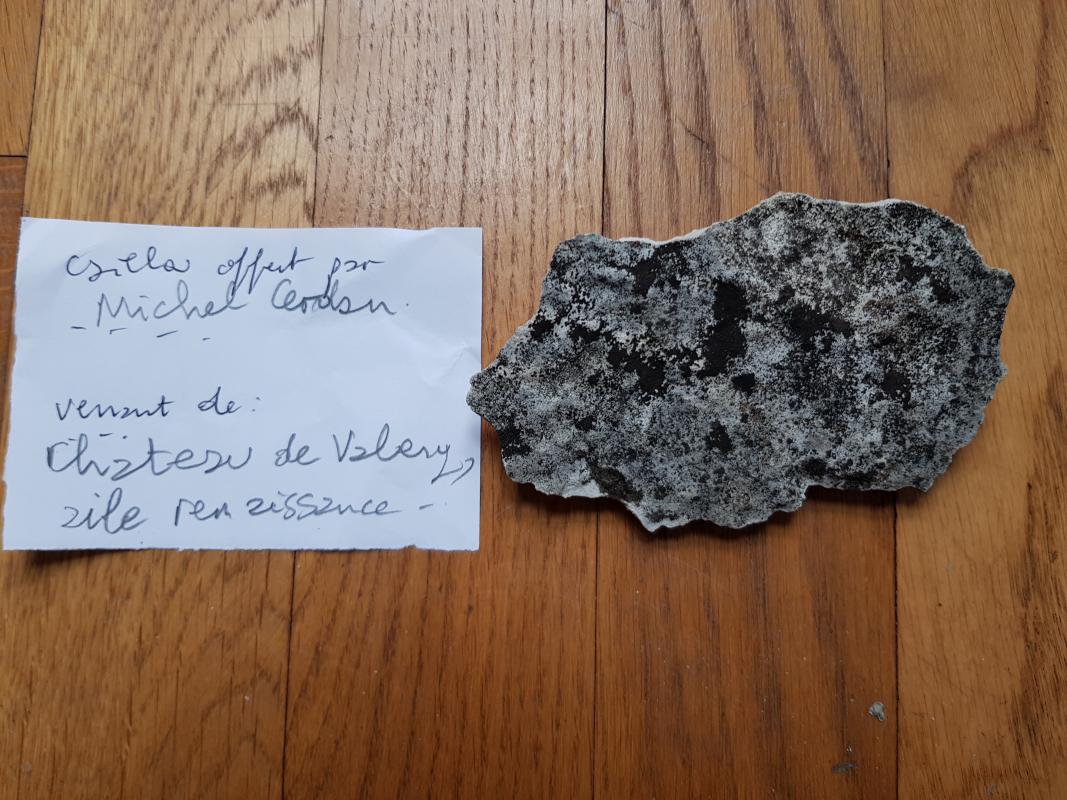 offert par
Michel Cerdan.
venant de:
Château de Valery,
aile renaissance -